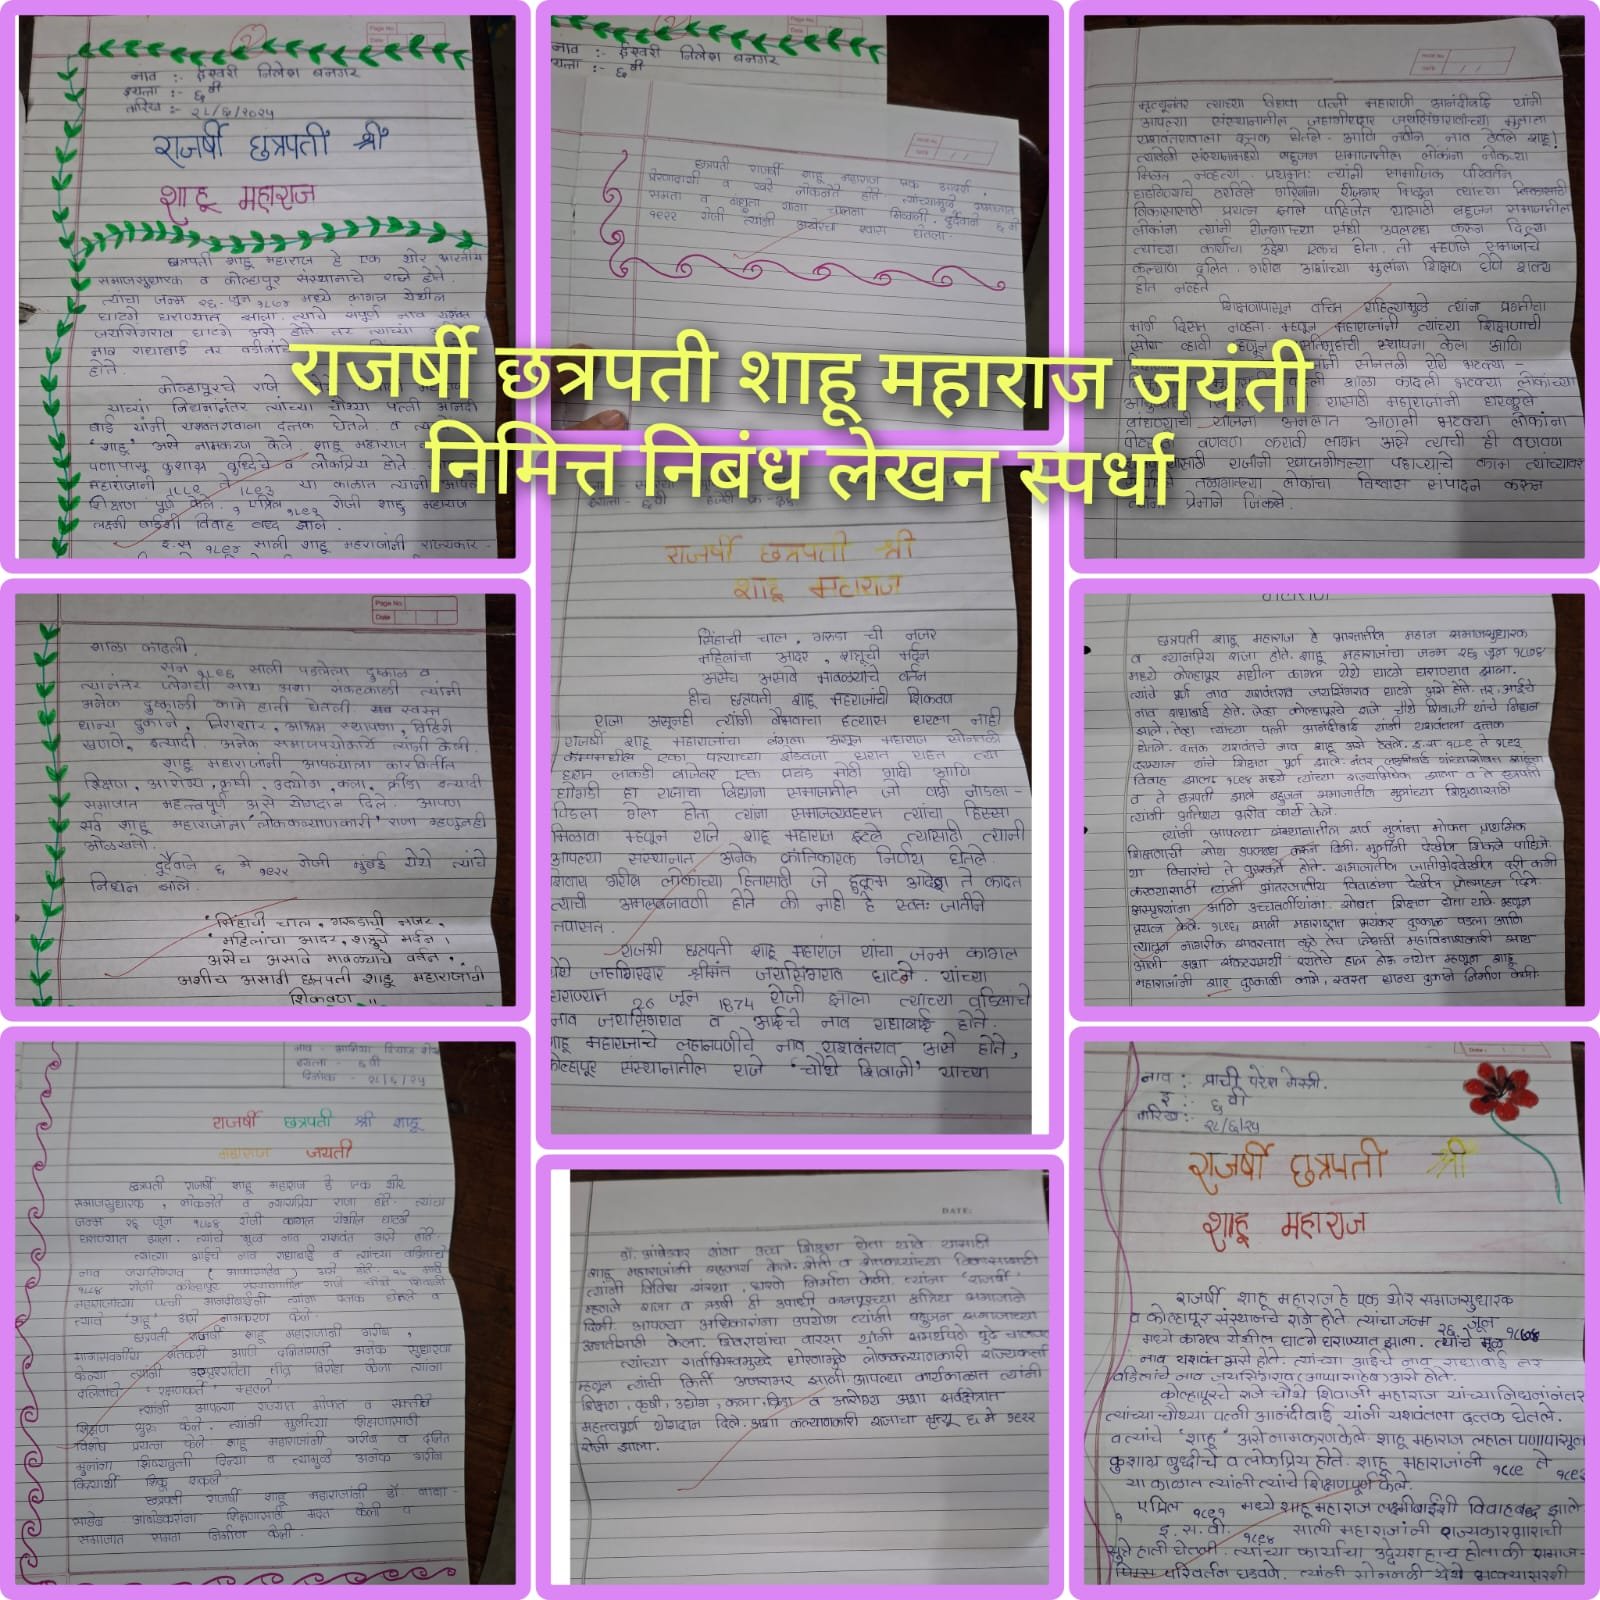 राजर्षी छत्रपती शाहू महाराज जयंती
निमित्त निबंध लेखन स्पर्धा
नाव :- ईश्वरी निलेश बनगर
इयत्ता :- ६वी
तारिख :- २८/६/२०२५
राजर्षी छत्रपती श्री
शाहू महाराज
छत्रपती शाहू महाराज हे एक थोर भारतीय
समाजसुधारक व कोल्हापूर संस्थानाचे राजे होते.
त्यांचा जन्म २६ जून १८७४ मध्ये कागल येथील
घाटगे घराण्यात झाला. त्यांचे संपूर्ण नाव यशवंत
जयसिंगराव घाटगे असे होते तर त्यांच्या
नाव राधाबाई तर वडीलांचे
होते.
कोल्हापूरचे राजे
याच्या निधनानंतर त्यांच्या चौथ्या पत्नी आनंदी
बाई यांनी यशवंतरावाला दत्तक घेतले. व
'शाहू' असे नामकरण केले शाहू महाराज
पणापासू कुशाग्र बुध्दिचे व लोकप्रिय होते.
महाराजांनी १८८९ ते १८९३ या काळात त्यांनी आपले
शिक्षण पूर्ण केले. १ एप्रिल १८९१ रोजी शाहू महाराज
लक्ष्मी बाईशी विवाह बध्द झाले.
इ.स १८९४ साली शाहू महराजांनी राज्यकार
नाव :- ईश्वरी निलेश बनगर
इयत्ता :- ६वी
छत्रपती राजर्षी शाहू महाराज एक आदर्श,
प्रेरणादायी व खरे लोकनेते होते. त्यांच्यामुळे समाजात
समता व बंधुता यांना चालना मिळाली. दुर्दैवाने ६ मे
१९२२ रोजी त्यांनी अखेरचा श्वास घेतला.
मृत्यूनंतर त्यांच्या विधवा पत्नी महाराणी आनंदीबाई यांनी
आपल्या संस्थानातील जहागीरदार जयसिंगरावांच्या मुलाला
यशवंतरावाला दत्तक घेतले. आणि नवीन नाव ठेवले शाहू!
त्यावेळी संस्थानामध्ये बहुजन समाजातील लोकांना नोकऱ्या
मिळत नव्हत्या. प्रथमतः त्यांनी सामाजिक परिवर्तन
घडविण्याचे ठरविले गरिबांना रोजगार मिळून त्यांच्या विकासासाठी
विकासासाठी प्रयत्न झाले पाहिजेत यासाठी बहुजन समाजातील
लोकांना त्यांनी रोजगाराच्या संधी उपलब्ध करून दिल्या
त्यांच्या कार्याचा उद्देश एकच होता. तो म्हणजे समाजाचे
कल्याण दलित, गरीब अशांच्या मुलांना शिक्षण घेणे शक्य
होत नव्हते
शिक्षणापासून वंचित राहिल्यामुळे त्यांना प्रगतीचा
मार्ग दिसत नव्हता. म्हणून महाराजांनी त्यांच्या शिक्षणाची
सोय व्हावी म्हणून वसतिगृहाची स्थापना केला आणि
यांनी सोनतळी येथे भटक्या -
शाळा काढली भटक्या लोकांच्या
यासाठी महाराजांनी घरकुले
बांधण्याची योजना अमलात आणली भटक्या लोकांना
वणवण करावी लागत असे त्यांची ही वणवण
राजांनी खाजगीतल्या पहाऱ्याचे काम त्यांच्यावर
तळागातल्या लोकांचा विश्वास संपादन करून
प्रेमाने जिंकले.
शाळा काढली.
सन १८९६ साली पडलेला दुष्काळ व
त्यानंतर प्लेगची साथ अशा संकटकाळी त्यांनी
अनेक दुष्काळी कामे हाती घेतली. सव स्वस्त
धान्य दुकाने, निराधार, आश्रम स्थापना, विहिरी
खणणे, इत्यादी. अनेक समाजपयोकार्ये त्यांनी केली.
शाहू महाराजांनी आपल्याला कारकिर्दीत
शिक्षण, आरोग्य, कृषी, उद्योग, कला, क्रीडा इत्यादी
समाजात महत्त्वपूर्ण असे योगदान दिले. आपण
सर्व शाहू महाराजांना 'लोककल्याणकारी' राजा म्हणूनही
ओळखतो.
दुर्दैवाने ६ मे १९२२ रोजी मुंबई येथे त्यांचे
निधन झाले.
'सिंहाची चाल, गरुडाची नजर,
महिलांचा आदर, शत्रूचे मर्दन,
असेच असावे मावळ्यांचे वर्तन..
अशीच असावी छत्रपती शाहू महाराजांनी
शिकवण"
राजर्षी छत्रपती श्री
शाहू महाराज
सिंहाची चाल, गरुडा ची नजर
महिलांचा आदर, शत्रूची मर्दन
असेच असावे मावळ्यांचे वर्तन
हीच छत्रपती शाहू महराजांची शिकवण
राजा असूनही त्यांनी वैभवाचा हव्यास धरला नाही
राजर्षी शाहू महाराजांचा बंगला असून महाराज सोनतळी
कॅम्पमधील एका पत्र्याच्या शेडवजा घरात राहत त्या
घरात लाकडी बाजेवर एक प्रचंड मोठी गादी आणि
घोंगडी हा राजाचा बिछाना समाजातील जो वर्ग नाडला-
पिडला गेला होता त्यांना समाजव्यवहारात त्यांचा हिस्सा
मिळावा म्हणून राजे शाहू महाराज झटले त्यासाठी त्यांनी
आपल्या संस्थानात अनेक क्रांतिकारक निर्णय घेतले
शिवाय गरीब लोकांच्या हितासाठी जे हुकूम आदेश ते काढत
त्याची अमलबजावणी होते की नाही हे स्वतः जातीने
तपासत.
राजश्री छत्रपती शाहू महाराज यांचा जन्म कागल
येथे जहागिरदार श्रीमंत जयसिंगराव घाटगे. यांच्या
घराण्यात 26 जून 1874 रोजी झाला त्यांच्या वडिलांचे
नाव जयसिंगराव व आईचे नाव राधाबाई होते.
शाहू महाराजांचे लहानपणीचे नाव यशवंतराव असे होते,
कोल्हापूर संस्थानातील राजे 'चौथे शिवाजी' याच्या
छत्रपती शाहू महाराज हे भारतातील महान समाजसुधारक
व न्यायप्रिय राजा होते. शाहू महाराजांचा जन्म २६ जून १८७४
मध्ये कोल्हापूर मधील कागल येथे घाटगे घराण्यात झाला.
त्यांचे पूर्ण नाव यशवंतराव जयसिंगराव घाटगे असे होते. तर आईचे
नाव राधाबाई होते. जेव्हा कोल्हापूरचे राजे चौथे शिवाजी यांचे निधन
झाले. तेव्हा त्यांच्या पत्नी आनंदीबाई यांनी यशवंतला दत्तक
घेतले. दत्तक यशवंतचे नाव शाहू असे ठेवले. इ.स. १८८९ ते १८९३
दरम्यान यांचे शिक्षण पूर्ण झाले. नंतर लक्ष्मीबाई यांच्यासोबत शाहूंचा
विवाह झाला. १८९४ मध्ये त्यांच्या राज्याभिषेक झाला व ते छत्रपती
व ते छत्रपती झाले बहुजन समाजातील मुलांच्या शिक्षणासाठी
त्यांनी अतिशय शरीर कार्य केले.
त्यांनी आपल्या संस्थानातील सर्व मुलांना मोफत प्राथमिक
शिक्षणाची सोय उपलब्ध करून दिली. मुलींनी देखील शिकले पाहिजे.
या विचारांचे ते पुरस्कर्ते होते. समाजातील जातीभेददेखील दूरी कमी
करण्यासाठी त्यांनी आंतरजातीय विवाहाना देखील प्रोत्साहन दिले.
अस्पृश्यांना आणि उच्चवर्णीयांना. सोबत शिक्षण घेता यावे. म्हणून
प्रयत्न केले. १८९६ साली महाराष्ट्रात भयंकर दुष्काळ पडला आणि
त्यातून नागरीक सावरतात कुठे तेच प्लेगची महाविनाशकारी साथ
आली अशा संकटसमयी रयतेचे हाल होऊ नयेत म्हणून शाहू
महाराजांनी शाहू दुष्काळी कामे, स्वस्त धान्य दुकाने निर्माण केली.
इयत्ता - ६वी
दिनांक - २८/६/२५
राजर्षी छत्रपती श्री शाहू
महाराज जयंती
छत्रपती राजर्षी शाहू महाराज हे एक थोर
समाजसुधारक, लोकनेते व न्यायप्रिय राजा होते. त्यांचा
जन्म २६ जून १८७४ रोजी कागल येथील घाटगे
घराण्यात झाला. त्यांचे मूळ नाव यशवंत असे होते.
त्यांच्या आईचे नाव राधाबाई व त्यांच्या वडिलांचे
नाव जयसिंगराव (आप्पासाहेब) असे होते. १७ मार्च
१८८४ रोजी कोल्हापूर संस्थानातील राजे चौथे शिवाजी
महाराजांच्या पत्नी आनंदीबाईंनी त्यांना दत्तक घेतले व
त्यांचे 'शाहू' असे नामकरण केले.
छत्रपती राजर्षी शाहू महाराजांनी गरीब,
मागासवर्गीय, शेतकरी आणि दलितांसाठी अनेक सुधारणा
केल्या त्यांनी अस्पृश्यतेचा तीव्र विरोध केला त्यांना
दलितांचे 'रक्षणकर्ते' म्हटले.
त्यांनी आपल्या राज्यात मोफत व सक्तीचे
शिक्षण सुरू केले. त्यांनी मुलींच्या शिक्षणासाठी
विशेष प्रयत्न केले. शाहू महाराजांनी गरीब व दलित
मुलांना शिष्यवृत्ती दिल्या व त्यामुळे अनेक गरीब
विद्यार्थी शिकू शकले.
छत्रपती राजर्षी शाहू महाराजांनी डॉ बाबा-
साहेब आंबेडकरांना शिक्षणासाठी मदत केली व
समाजात समता निर्माण केली.
DATE:
डॉ. आंबेडकर यांना उच्च शिक्षण घेता यावे यासाठी
शाहू महाराजांनी सहकार्य केले. शेती व शेतकऱ्यांच्या विकासासाठी
त्यांनी विविध संस्था, धरणे निर्माण केली. त्यांना 'राजर्षी'
म्हणजे राजा व ऋषी ही उपाधी कानपूरच्या क्षत्रिय समाजाने
दिली. आपल्या अधिकारांना उपयोग त्यांनी बहुजन समाजाच्या
उन्नतीसाठी केला. शिवरायांचा वारसा यांनी समर्थपणे पुढे चालवत
त्यांच्या सर्वाभिमुख धोरणामुळे लोककल्याणकारी राज्यकर्ता
म्हणून त्यांची किर्ती अजरामर झाली. आपल्या कार्यकाळात त्यांनी
शिक्षण, कृषी, उद्योग, कला, क्रिडा व आरोग्य अशा सर्वक्षेत्रात
महत्त्वपूर्ण योगदान दिले. अशा कल्याणकारी राजाचा मृत्यू ६ मे १९२२
रोजी झाला.
नाव :- प्राची परेश मेस्त्री.
इ :- ६वी
तारिख:- २८/६/२५
राजर्षी छत्रपती श्री
शाहू महाराज
राजर्षी शाहू महाराज हे एक थोर समाजसुधारक
व कोल्हापूर संस्थानचे राजे होते. त्यांचा जन्म २६ जून १८७४
मध्ये कागल येथील घाटगे घराण्यात झाला. त्यांचे मूळ
नाव यशवंत असे होते. त्यांच्या आईचे नाव राधाबाई तर
वडिलांचे नाव जयसिंगराव (आप्पासाहेब) असे होते.
कोल्हापूरचे राजे चौथे शिवाजी महाराज यांच्या निधनानंतर
त्यांच्या चौथ्या पत्नी आनंदीबाई यांनी यशवंतला दत्तक घेतले.
व त्यांचे 'शाहू' असे नामकरण केले. शाहू महाराज लहान पणापासून
कुशाग्र बुध्दीचे व लोकप्रिय होते. शाहू महाराजांनी १८८९ ते १८९३
या काळात त्यांनी त्यांचे शिक्षण पूर्ण केले.
१ एप्रिल १८९१ मध्ये शाहू महाराज लक्ष्मीबाईशी विवाहबद्ध झाले
इ.स.वी. १८९४ साली महाराजांनी राज्यकारभाराची
सुत्रे हाती घेतली. त्यांच्या कार्याचा उद्देश हाच होता की समाज-
परिवर्तन घडवणे. त्यांनी सोनतळी येथे भटक्यासारखी